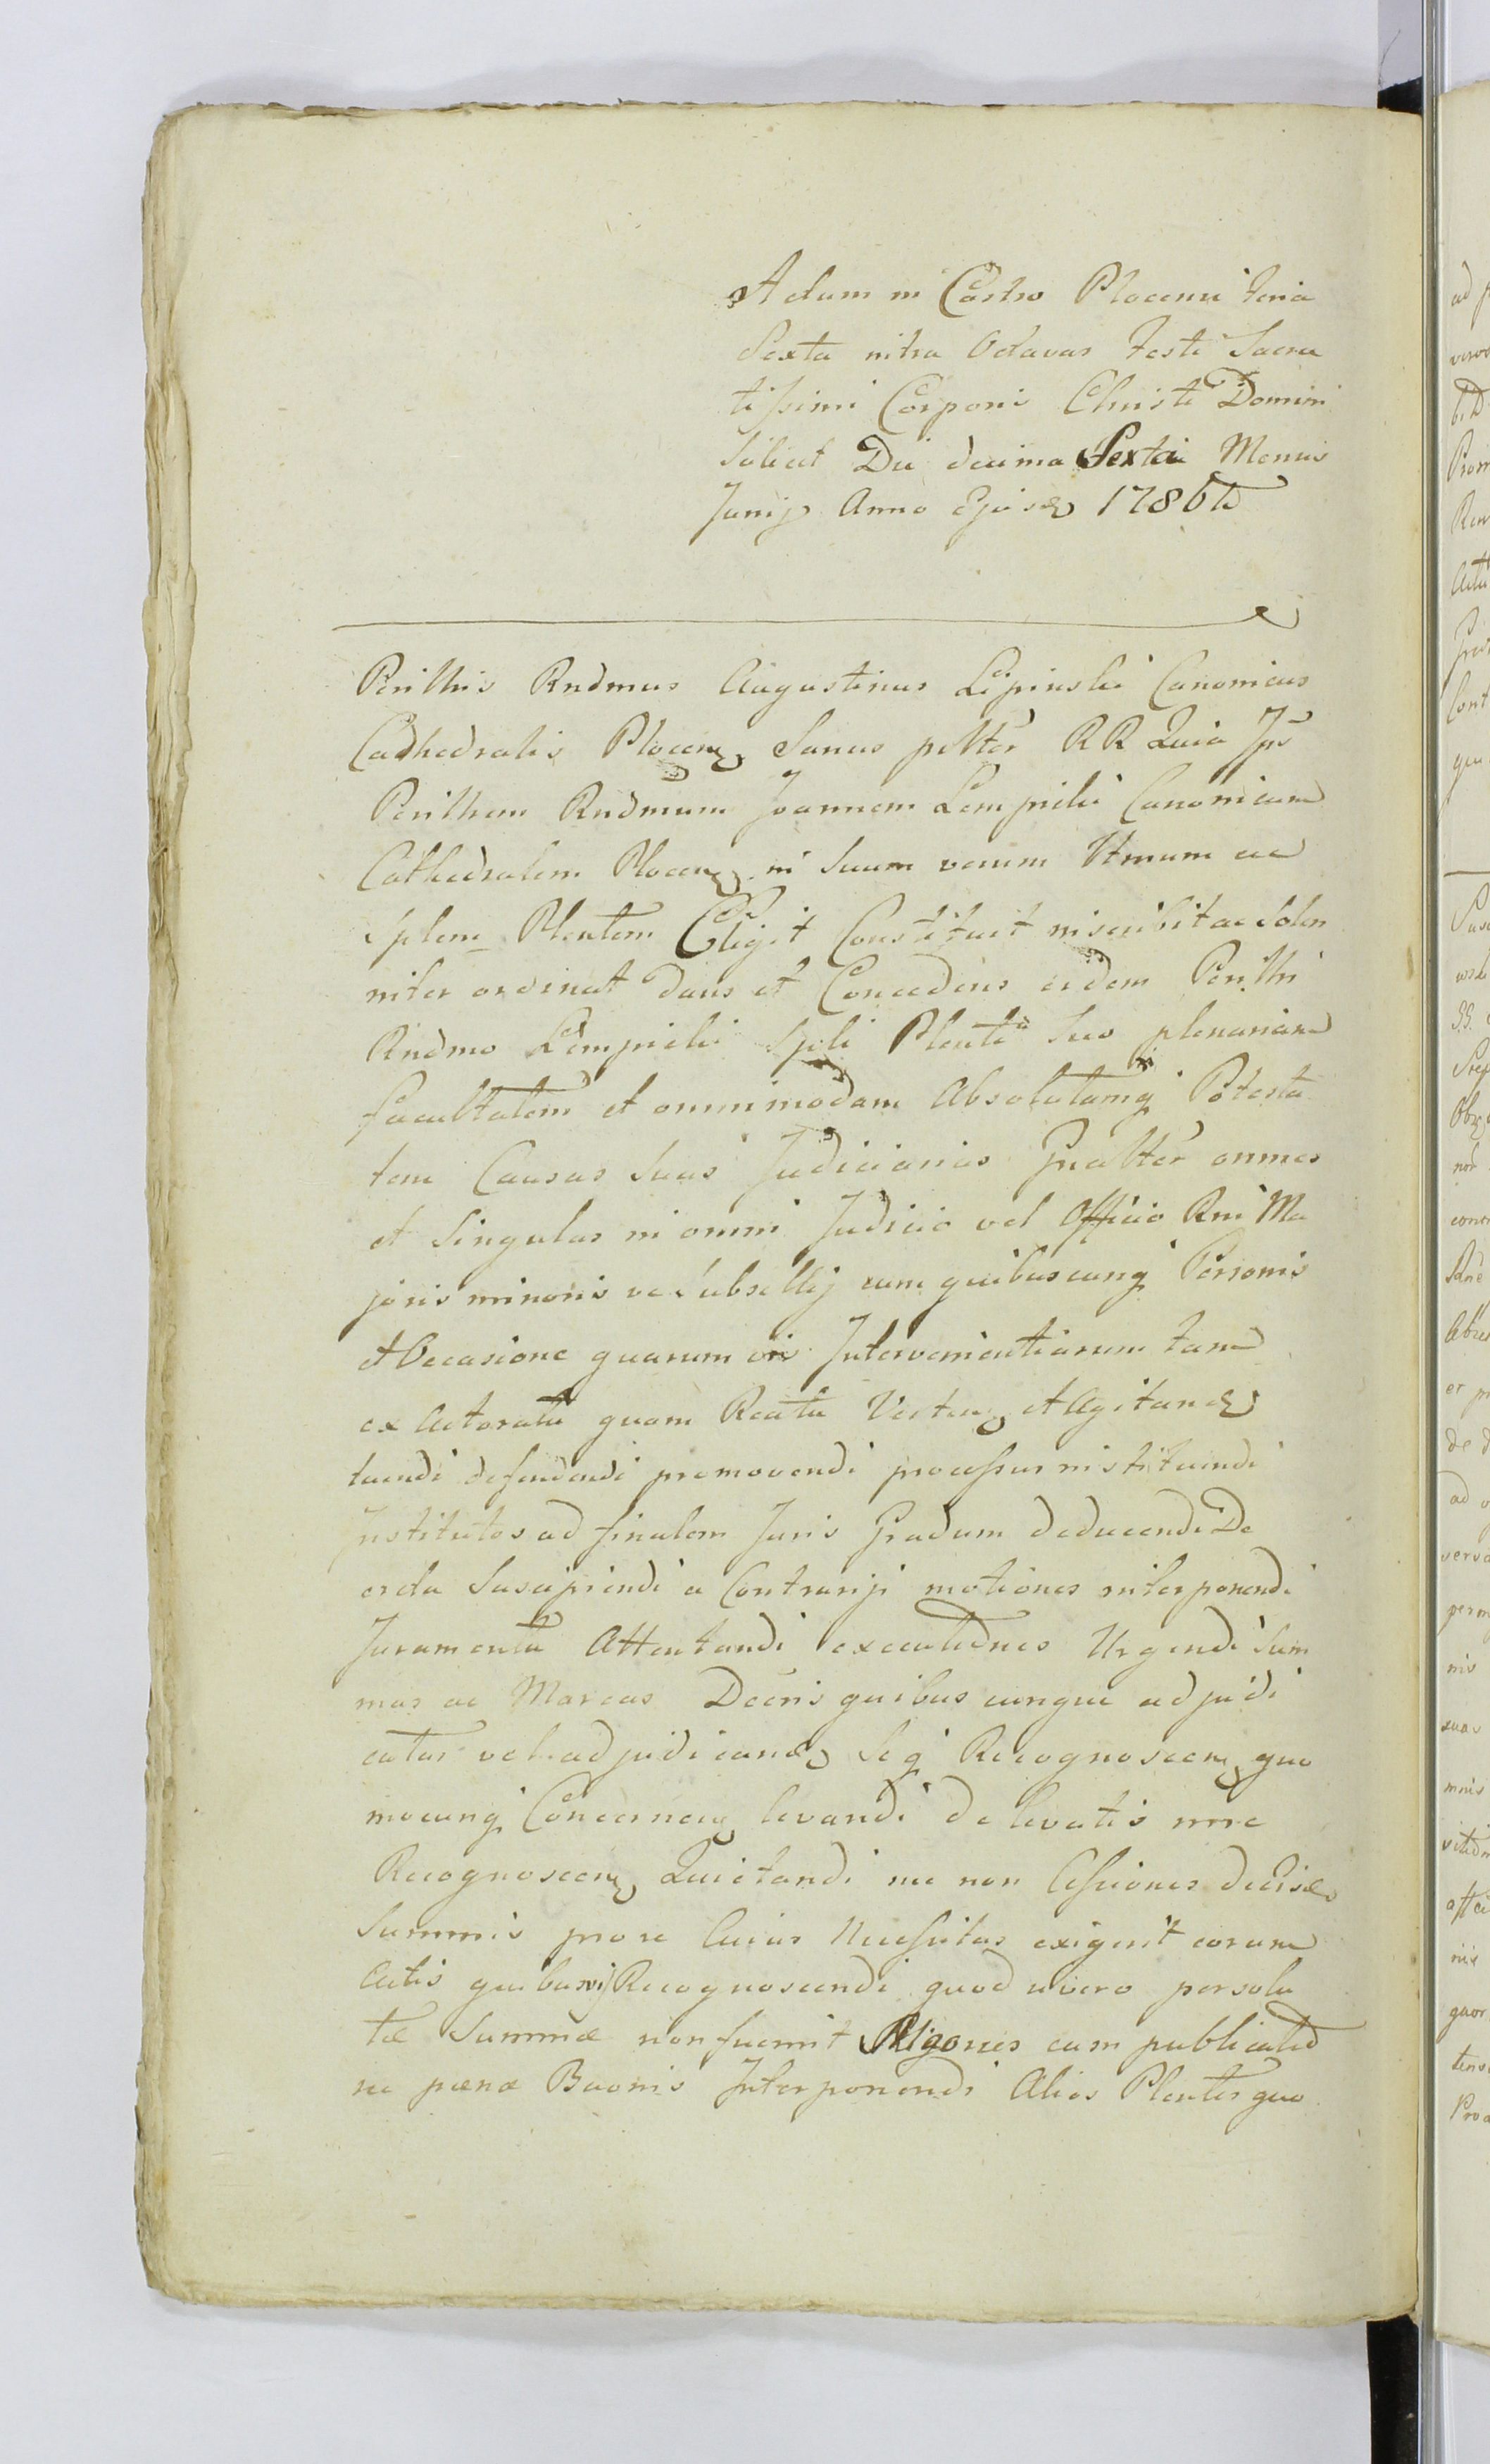 Actum in Castro Plocensi Feria
Sexta intra Octavas Festi Sacra
tissimi Corporis Christi Domini
Scilicet Die decima Sexta Mensis
Junij Anno Ejusd 1786to
Perillris Rndmus Augustinus Lipinski Canonicus
Cathedralis Plocen. Sanus pstter RR Quia Ips
Perillrem Rndmum Joannem Lempicki Canonicum
Cathedralem Plocen. in Suum verum ltmum ac
splem Plentem Eligit Constituit inscribit ac Solen
niter ordinat dans et Concedens eidem Perillri
Rndmo Lempicki Spli Plenti Suo plenariam
facultatem et omnimodam Absolutamq Potesta
tem Causas Suas Judiciarias Gnalter omnes
et Singulas in omni Judicio vel Officio Rni Ma
joris minoris ve Subsellij cum quibuscunq Personis
et Occasione quarumvis Intervenientiarum tam
ex Actoratu quam Reatu Verten. et Agitand
tuendi defendendi promovendi processus instituendi
Institutos ad finalem Juris Gradum deducendi De
creta Suscipiendi a Contrarijs motiones interponendi
Juramenta Attentandi executiones Urgendi Sum
mas ac Marcas Decris quibuscunque adjudi
catas vel adjudicand Seq Recognoscen. quo
mocunq Concernen. levandi de levatis
Recognoscen. Quietandi nec non Cessiones de
Summis pro re Cuius Necessitas exigerit coram
Actis quibusvis Recognoscendi quod si vero persolu
tæ Summæ non fuerint cum publicatio
ne pænæ Baonis Interponendi Alios Plentes quo